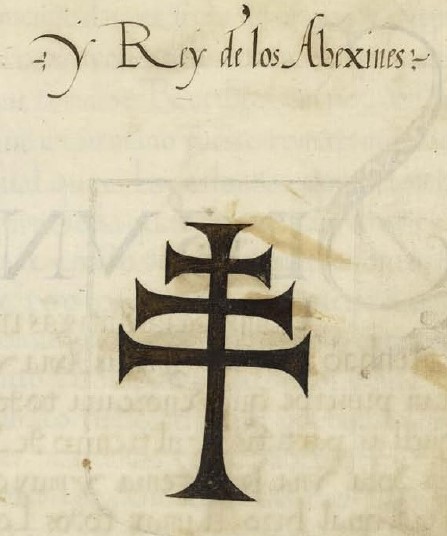 y Rey de los Abexines